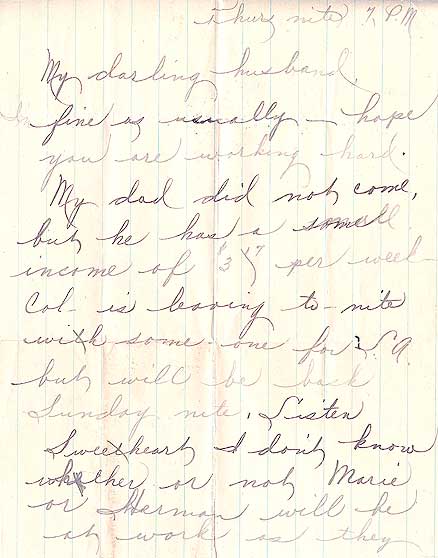 Thurs nite 7 P.M
My darling husband,
Im fine as usually – hope
you are working hard.
My dad did not come,
but he has a small
income of $ per week –
Col – is leaving to-nite
with some one for
but will be back
Sunday nite. Listen
Sweetheart I don't know
whether or not Marie
or Harman will be
at work as they